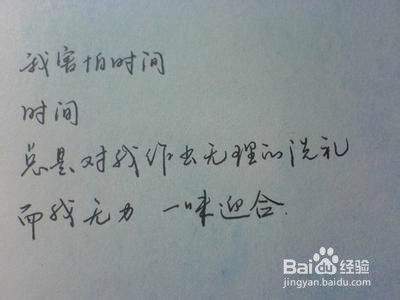 我害怕时间
时间
总是对我作出无理的洗礼
而我无力 一味迎合.
Baidu 百度 经验
jingyan.baidu.com